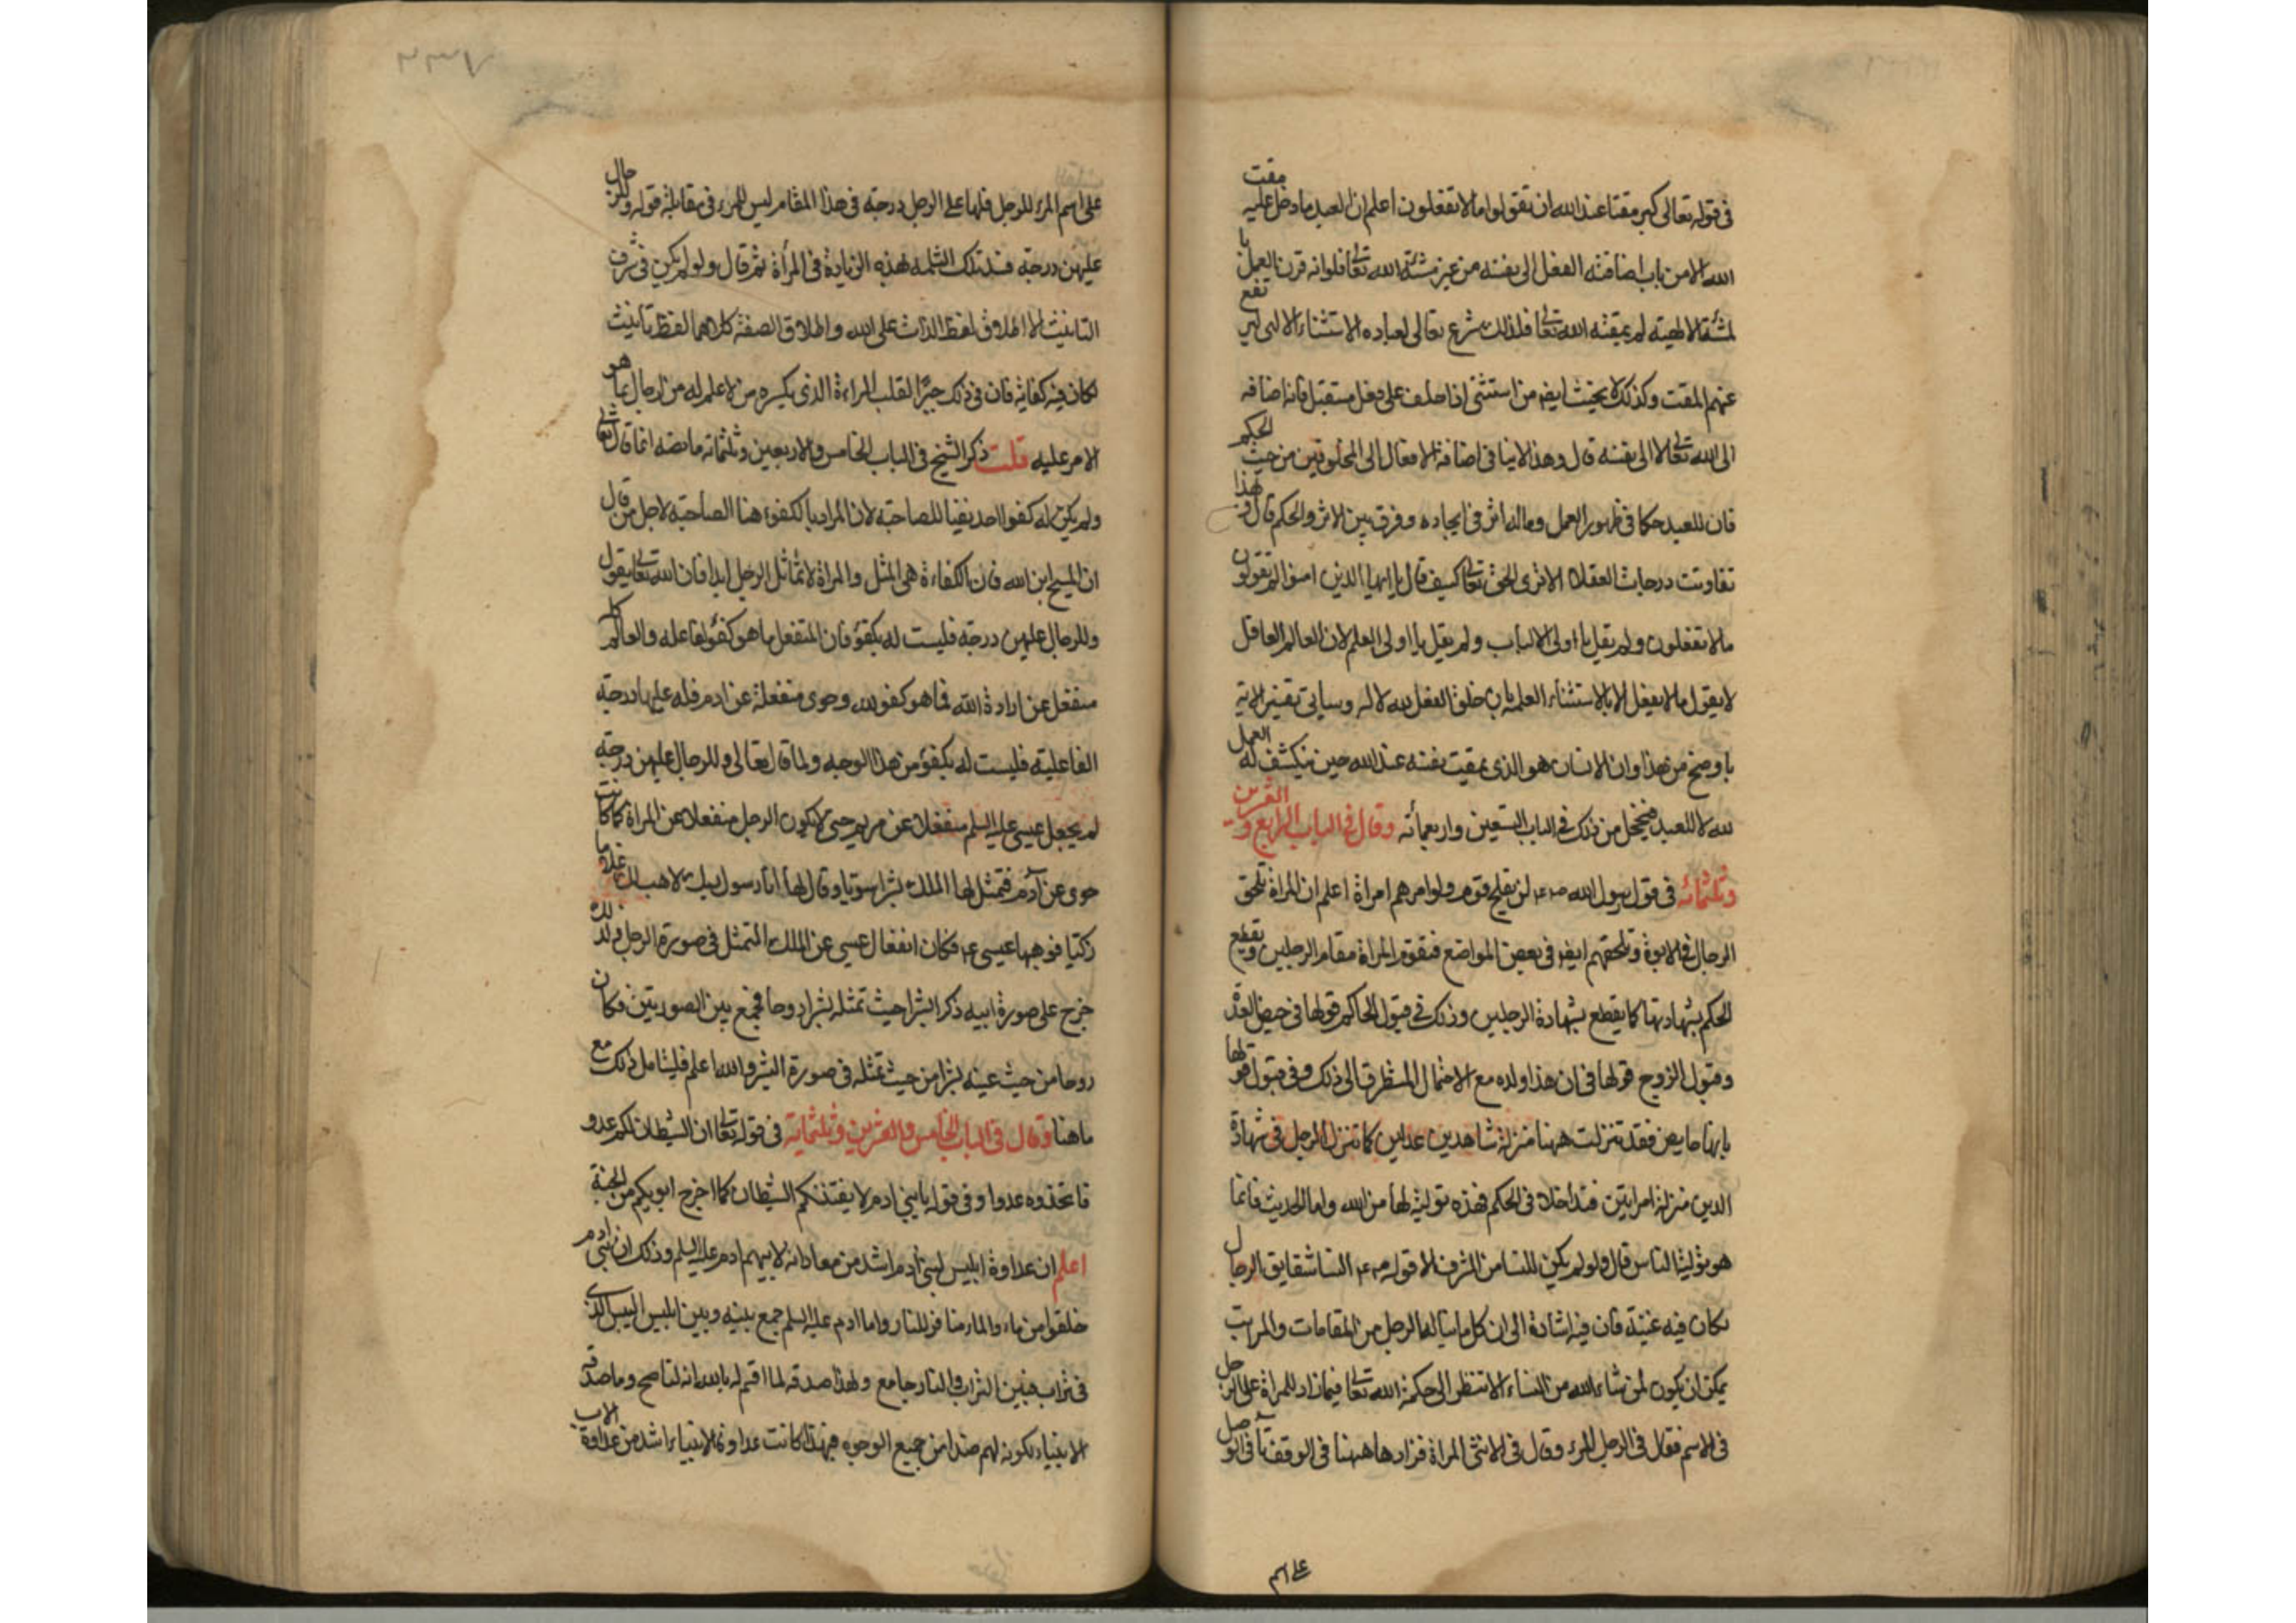 في قوله تعالى كبر مقتا عند الله ان تقولوا ما لا تفعلون اعلم ان العبد ما دخل عليه مقت
الله الا من باب اضافته الفعل الى نفسه من غير مشئة الله تعالى فلو انه قرن العمل با
لمشئة الالهية لم يمقته الله تعالى فلذلك شرع تعالى لعباده الاستثناء الالهي ليرتفع
عنهم المقت وكذلك لا يحنث ايضا من استثنى اذا حلف على فعل مستقبل فانه اضافه
الى الله تعالى لا الى نفسه قال وهذا لا ينافي اضافة الافعال الى المخلوقين من حيث الحكم
فان للعبد حكما في ظهور العمل وماله اثر في ايجاده وفرق بين الاثر والحكم قال ولهذا
تفاوتت درجات العقلاء الا ترى الحق تعالى كيف قال يا ايها الذين امنوا لم تقولون
ما لا تفعلون ولم يقل يا اولى الالباب ولم يقل يا اولى العلم لان العالم العاقل
لا يقول ما لا يفعل الا بالاستثناء لعلمه بان خلق الفعل لله لا له وسياتي تفسير الاية
باوضح من هذا وان الانسان هو الذي يمقت نفسه عند الله حين ينكشف له العمل
لله لا للعبد فيخجل من ذلك في الباب التسعين واربعمائه وقال في الباب الرابع والعشرين
وثلثمائه في قول رسول الله صـ عم لن يفلح قوم ولوا امرهم امراة اعلم ان المراة تلحق
الرجال في الابوة وتلحقهم ايضا في بعض المواضع فتقوم المراة مقام الرجلين ويقطع
الحكم بشهادتها كما يقطع بشهادة الرجلين وذلك في قبول الحاكم قولها في حيض العدة
وقبول الزوج قولها في ان هذا ولده مع الاحتمال المتطرق الى ذلك وفي قبول قولها
بانها حايض فقد تنزلت ههنا منزلة شاهدين عدلين كما تنزل الرجل في شهادة
الدين منزلة امراتين فتداخلا في الحكم فهذه تولية لها من الله واما الحديث فانما
هو تولية الناس قال ولو لم يكن للنسا من الشرف الا قوله صـ عم النسا شقايق الرجال
لكان فيه غنية فان فيه اشارة الى ان كل ما يناله الرجل من المقامات والمراتب
يمكن ان يكون لمن شاء الله من النساء الا تنظر الى حكمة الله تعالى فيما زاد للمراة على الرجل
في الاسم فقال في الرجل المرء وقال في الانثى المراة فزادها ههنا في الوقف تآ في الوصل
على اسم
على اسم المرء للرجل فلها على الرجل درجة في هذا المقام ليس للمرء في مقابلة قوله وللرجال
عليهن درجة فسد تلك الثلمة بهذه الزيادة في المرأة ثم قال ولو لم يكن في شرف
التانيث الا اطلاق لفظ الذات على الله واطلاق الصفة كلاهما لفظ تانيث
لكان فيه كفاية فان في ذلك جبرا لقلب المراءة الذي يكسره من لا علم له من الرجال بما هو
الامر عليه قلت ذكر الشيخ في الباب الخامس والاربعين وثلثمائه ما نصه انما قال تعالى
ولم يكن له كفوا احد نفيا للصاحبة لان المراد بالكفوء هنا الصاحبة لاجل من قال
ان المسيح ابن الله فان الكفاءة هي المثل والمراة لا تماثل الرجل ابدا فان الله تعالى يقول
وللرجال عليهن درجة فليست له بكفؤ فان المنفعل ما هو كفؤ لفاعله والعالم كله
منفعل عن ارادة الله فما هو كفو لله وحوى منفعلة عن ادم فله عليها درجة
الفاعلية فليست له بكفؤ من هذا الوجه ولما قال تعالى وللرجال عليهن درجة
لم يجعل عيسى عليه السلم منفعلا عن مريم حتى لا يكون الرجل منفعلا عن المراة كما كانت
حوى عن آدم فتمثل لها الملك بشرا سويا وقال لها انا رسول ربك لاهب لك غلاما
زكيا فوهبها عيسى عم فكان انفعال عيسى عن الملك المتمثل في صورة الرجل ولذلك
خرج على صورة ابيه ذكرا بشرا حيث تمثله بشرا روحا فجمع بين الصورتين فكان
روحا من حيث عينه بشرا من حيث تمثله في صورة البشر والله اعلم فليتامل ذلك مع
ما هنا وقال في الباب الخامس والعشرين وثلثمائة في قوله تعالى ان الشيطان لكم عدو
فاتخذوه عدوا وفي قوله يا بني ادم لا يفتننكم الشيطان كما اخرج ابويكم من الجنة
اعلم ان عداوة ابليس لبني آدم اشد من معاداته لابيهم ادم عليه السلم وذلك ان بني ادم
خلقوا من ماء والماء منافر للنار واما ادم عليه السلم جمع بينه وبين ابليس اليبس الذي
في تراب فبين التراب والنار جامع ولهذا صدقه لما اقسم له بالله انه لناصح وما صدقه
الابناء لكونه لهم ضدا من جميع الوجوه فهذا كانت عداوة الابناء اشد من عداوة الاب